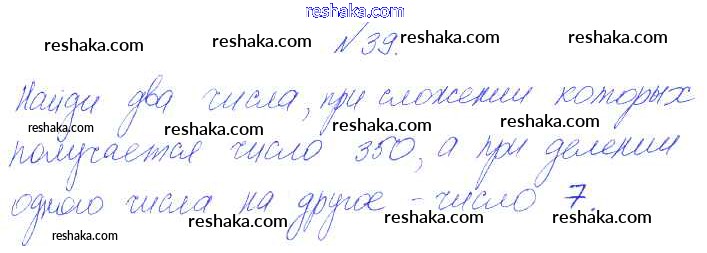 reshaka.com
№39.
reshaka.com reshaka.com reshaka.com reshaka.com
Найди два числа, при сложении которых
reshaka.com reshaka.com reshaka.com reshaka.com
получается число 350, а при делении
reshaka.com reshaka.com reshaka.com
одного числа на другое - число 7.
reshaka.com reshaka.com reshaka.com